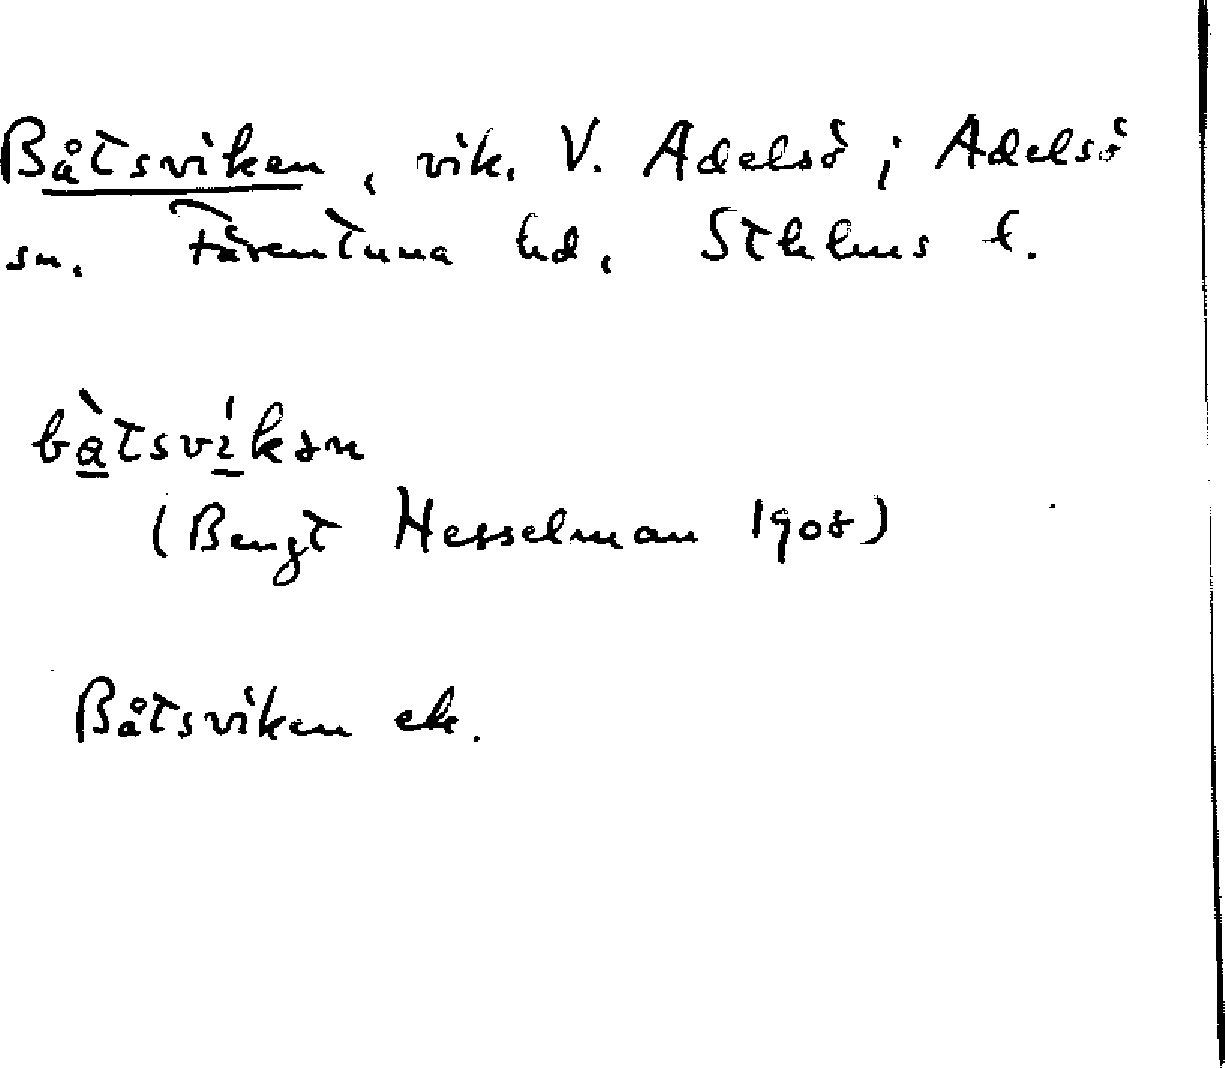 Båtsviken, vik. V. Adelsö i Adelsö
sn. Färentuna hd, Sthlms l.
bàtsvíkən
(Bengt Hesselman 1908)
Båtsviken ek.